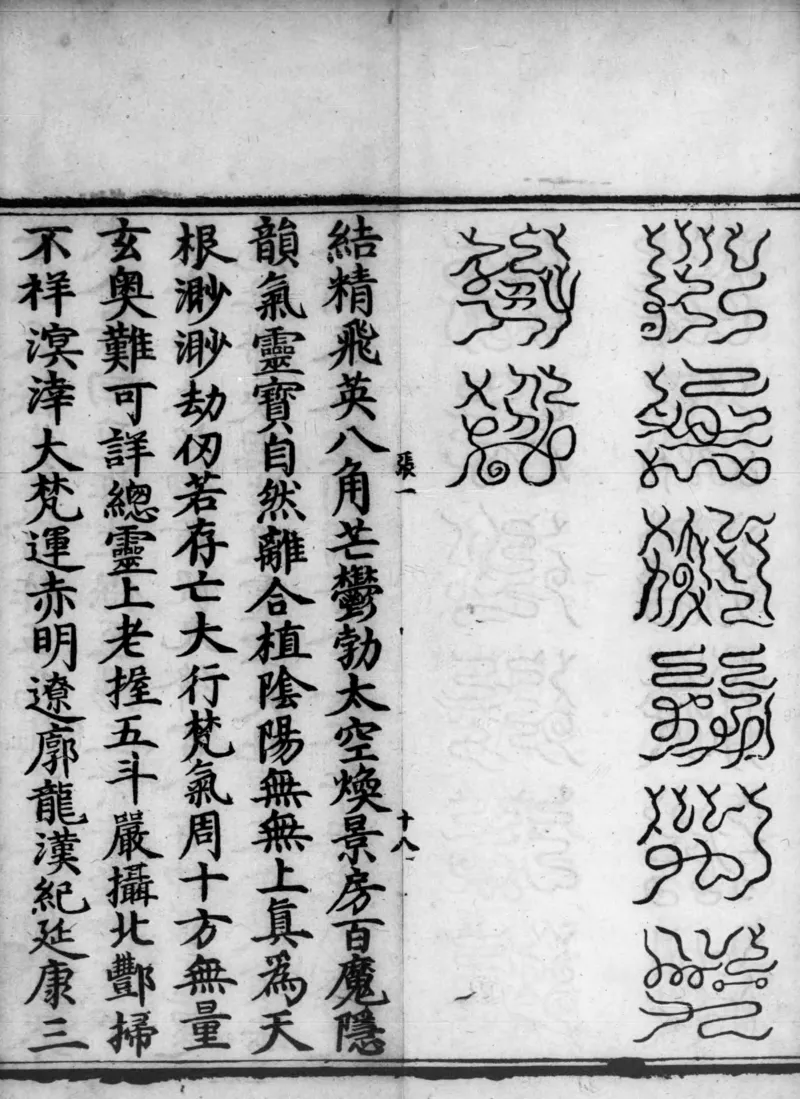 張一
十八
結精飛英八角芒鬱勃太空煥景房百魔隱
韻氣靈寶自然離合植陰陽無無上眞為天
根渺渺劫仞若存亡大行梵氣周十方無量
玄奥難可詳總靈上老握五斗嚴攝北酆掃
不祥溟涬大梵運赤明遼廓龍漢紀延康三